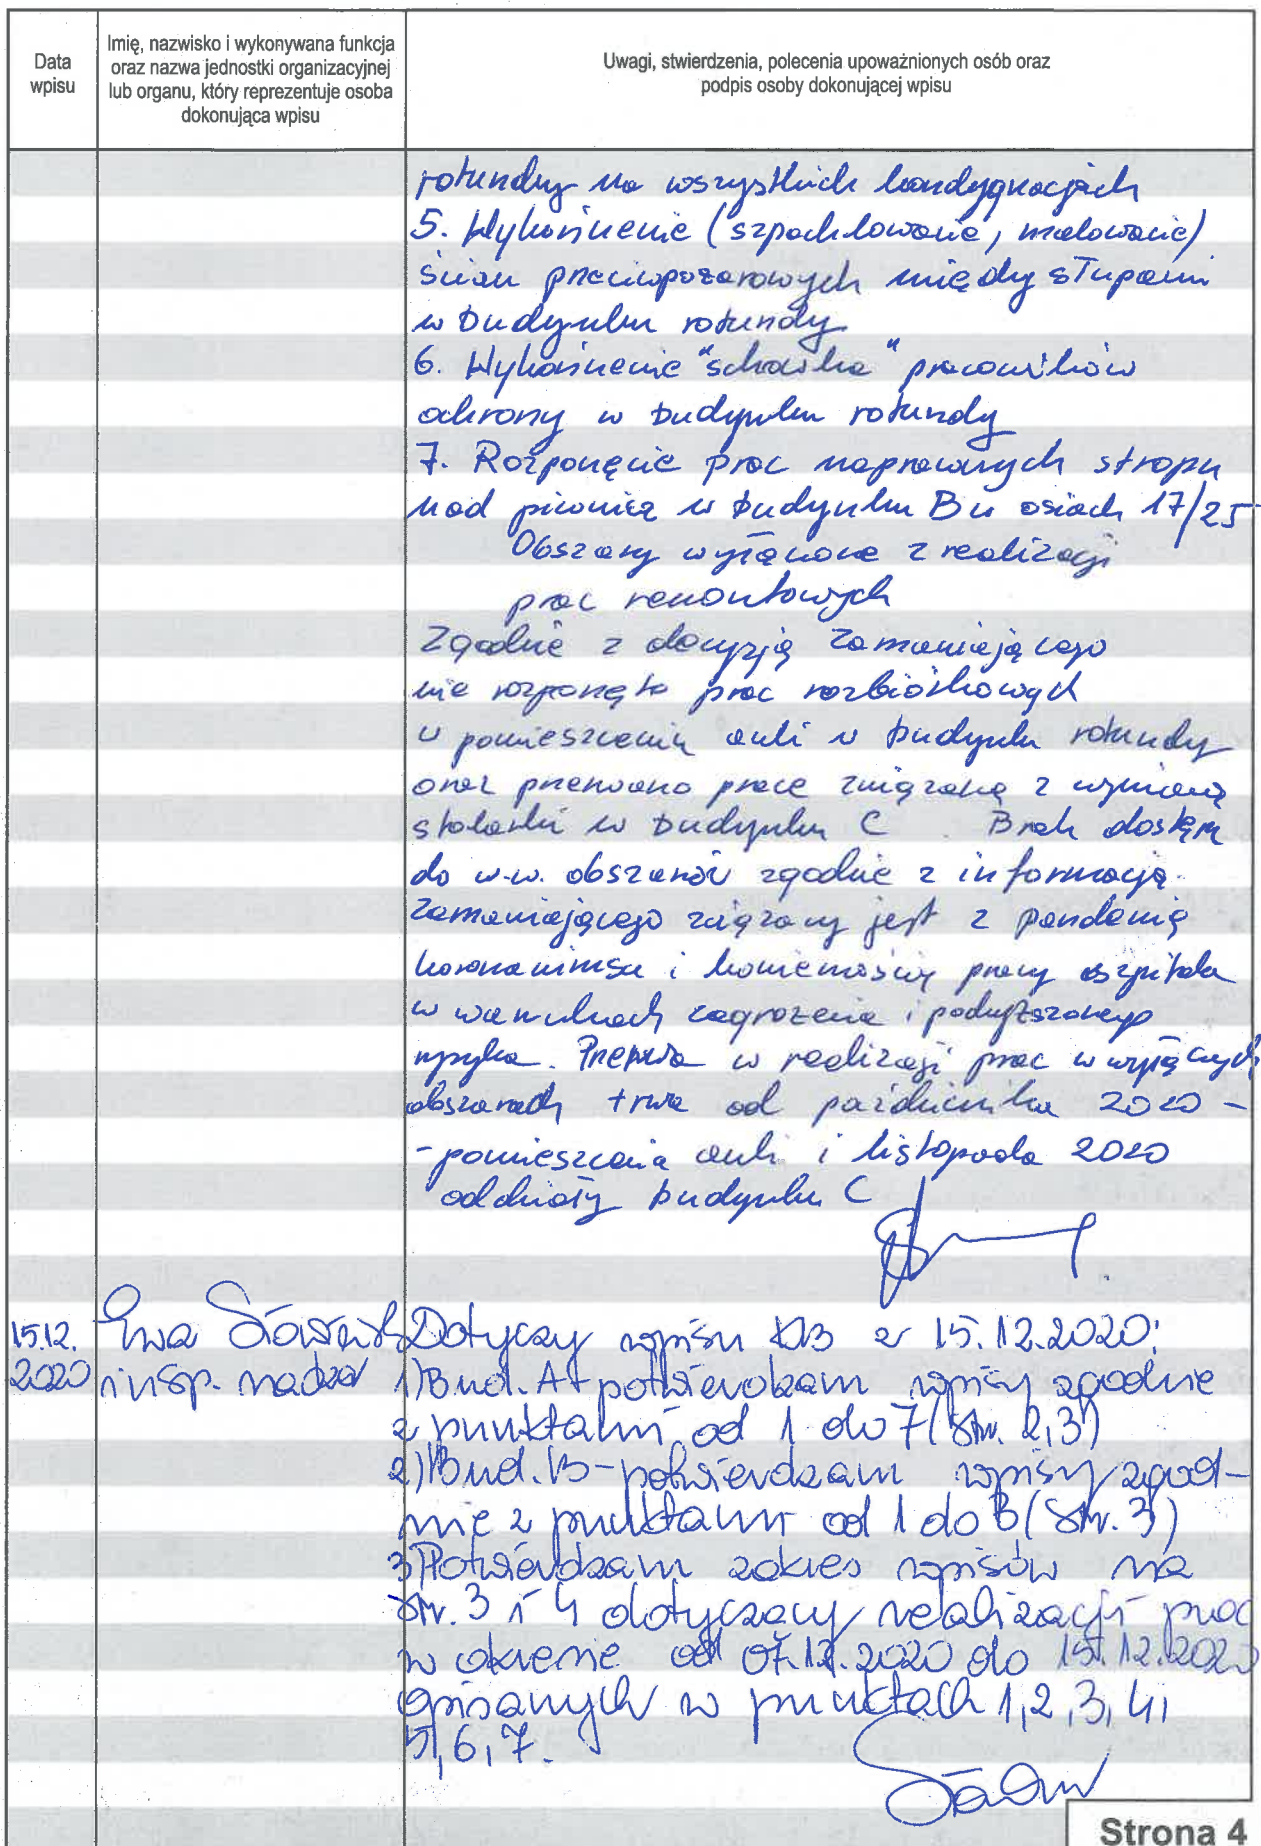 Data
wpisu
Imię, nazwisko i wykonywana funkcja
oraz nazwa jednostki organizacyjnej
lub organu, który reprezentuje osoba
dokonująca wpisu
Uwagi, stwierdzenia, polecenia upoważnionych osób oraz
podpis osoby dokonującej wpisu
rotundy na wszystkich kondygnacjach
5. Wykończenie (szpachlowanie, malowanie)
ścian przeciwpożarowych między słupami
w budynku rotundy
6. Wykończenie "schowka" pracowników
ochrony w budynku rotundy
7. Rozpoczęcie prac naprawczych stropu
nad piwnicą w budynku B w osiach 17/25
Obszary wyłączone z realizacji
prac remontowych
Zgodnie z decyzją Zamawiającego
nie rozpoczęto prac rozbiórkowych
w pomieszczeniu auli w budynku rotundy
oraz przerwano prace związaną z wymianą
stolarki w budynku C. Brak dostępu
do w.w. obszarów zgodnie z informacją
Zamawiającego związany jest z pandemią
koronawirusa i koniecznością pracy szpitala
w warunkach zagrożenia i podwyższonego
ryzyka. Przerwa w realizacji prac w wyłączonych
obszarach trwa od października 2020 -
- pomieszczenia auli i listopada 2020
oddziały budynku C
15.12.
2020
Ewa
insp. nadzoru
Dotyczy wpisu KB z 15.12.2020:
1) Bud. A - potwierdzam wpisy zgodnie
z punktami od 1 do 7 (str. 2,3)
2) Bud. B - potwierdzam wpisy zgod-
nie z punktami od 1 do (str. 3)
3) Potwierdzam zakres wpisów na
str. 3 i 4 dotyczący realizacji prac
w okresie od 07.12.2020 do 15.12.2020
opisanych w punktach 1, 2, 3, 4,
5, 6, 7.
Strona 4